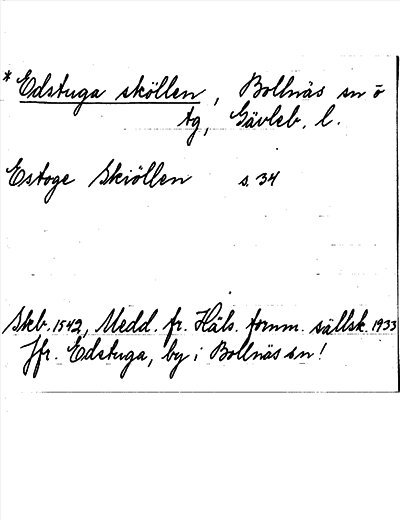 * Edstuga sköllen, Bollnäs sn ö
tg, Gävleb. l.
Estoge Skiöllen s. 34
Skb. 1542, Medd. fr. Häls. fornm. sällsk. 1933
Jfr. Edstuga, by i Bollnäs sn!